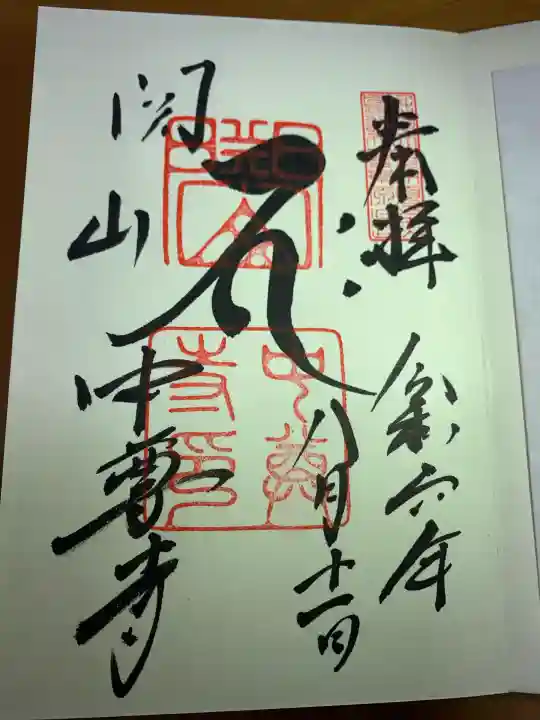 奉拝
令和六年
八月十一日
中尊
寺印
関山
中尊寺